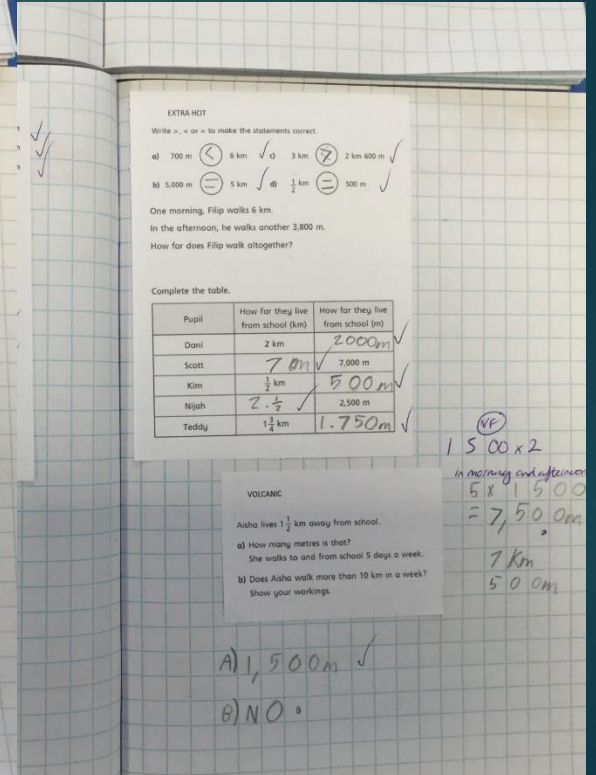 EXTRA HOT
Write >, < or = to make the statements correct.
a) 700 m < 6 km c) 3 km > 2 km 600 m
b) 5,000 m = 5 km d) 1/2 km = 500 m
One morning, Filip walks 6 km.
In the afternoon, he walks another 3,800 m.
How far does Filip walk altogether?
Complete the table.
Pupil How far they live from school (km) How far they live from school (m)
Dani 2 km 2000m
Scott 7 m 7,000 m
Kim 1/2 km 500m
Nijah 2.1/2 2,500 m
Teddy 1 3/4 km 1.750m
VOLCANIC
Aisha lives 1 1/2 km away from school.
a) How many metres is that?
She walks to and from school 5 days a week.
b) Does Aisha walk more than 10 km in a week?
Show your workings.
VF
1500 x 2
in morning and afternoon
5 x 1500
= 7,500m
7 Km
500m
A) 1,500m
B) NO.